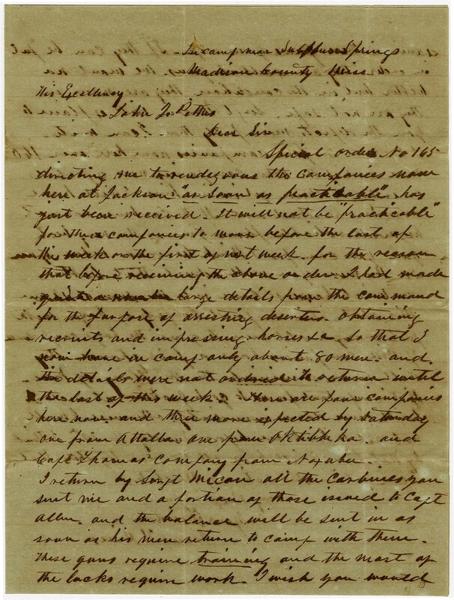 In camp near Sulphur Springs
Madison County Miss
His Excellency
John J. Pettus
Dear Sir
Special order No 165
directing me to rendezvous the companies now
here at Jackson "as soon as practicable" has
just been received. It will not be "practicable"
for these companies to move before the last of
this week or the first of next week. for the reason
that before receiving the above order I had made
large details from the command
for the purpose of arresting deserters obtaining
recruits and impressing horses &c. So that I
now have in camp only about 80 men. and
the details were not ordered to return until
the last of this week. There are four companies
here now and three more expected by Saturday
one from Attalla one from Oktibbeha. and
Capt Thomas' company from Noxubee.
I return by Sergt Micou all the Carbines you
sent me and a portion of those issued to Capt
Allen. and the balance will be sent in as
soon as his men return to camp with them.
These guns require training and the most of
the locks require work. I wish you would